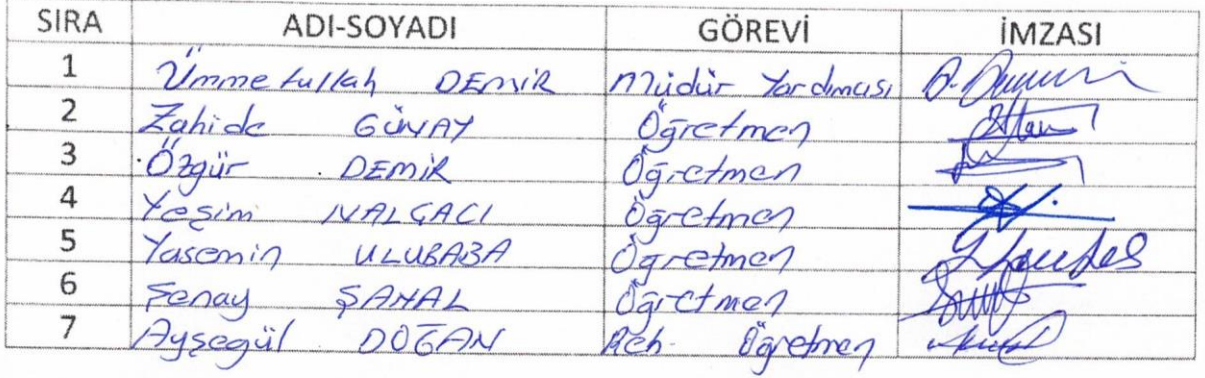 SIRA ADI-SOYADI GÖREVİ İMZASI
1 Ümmetullah DEMİR Müdür Yardımcısı
2 Zahide GÜNAY Öğretmen
3 Özgür DEMİR Öğretmen
4 Yeşim NALÇACI Öğretmen
5 Yasemin ULUBABA Öğretmen
6 Şenay Öğretmen
7 Ayşegül DOĞAN Reh. Öğretmen